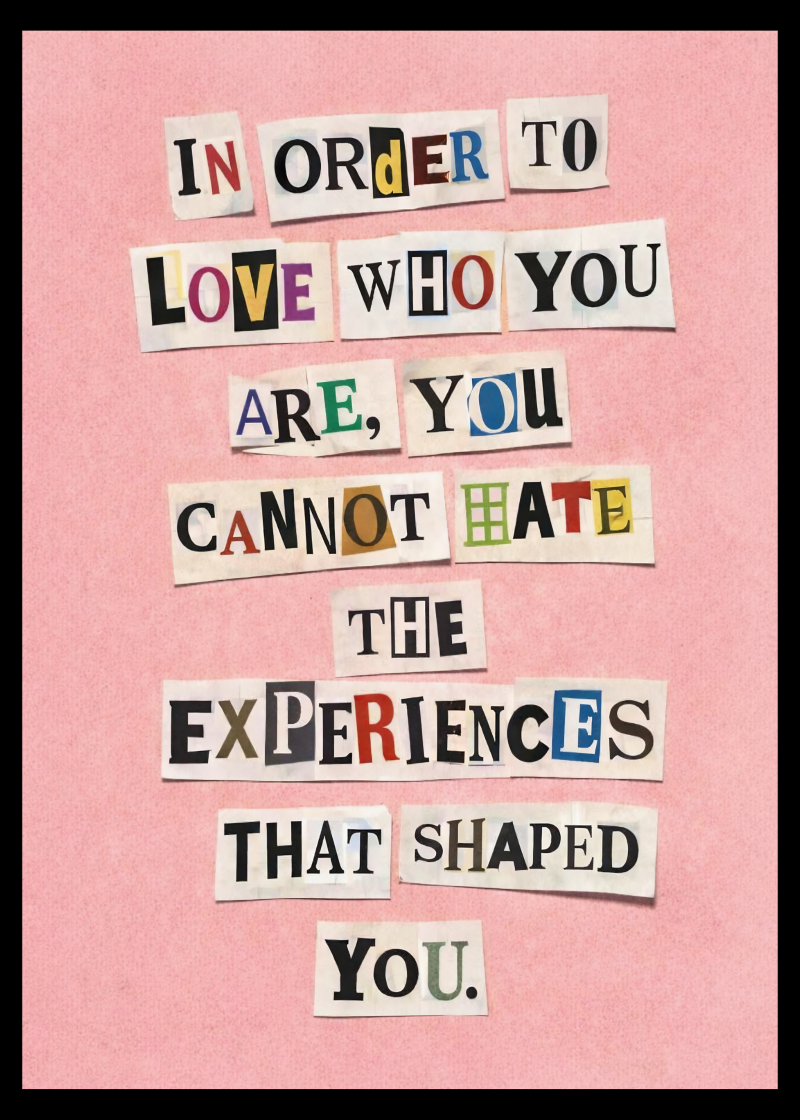 IN ORdER TO
LOVE WHO YOU
ARE, YOU
CANNOT HATE
THE
EXPERIENCES
THAT SHAPED
YOU.